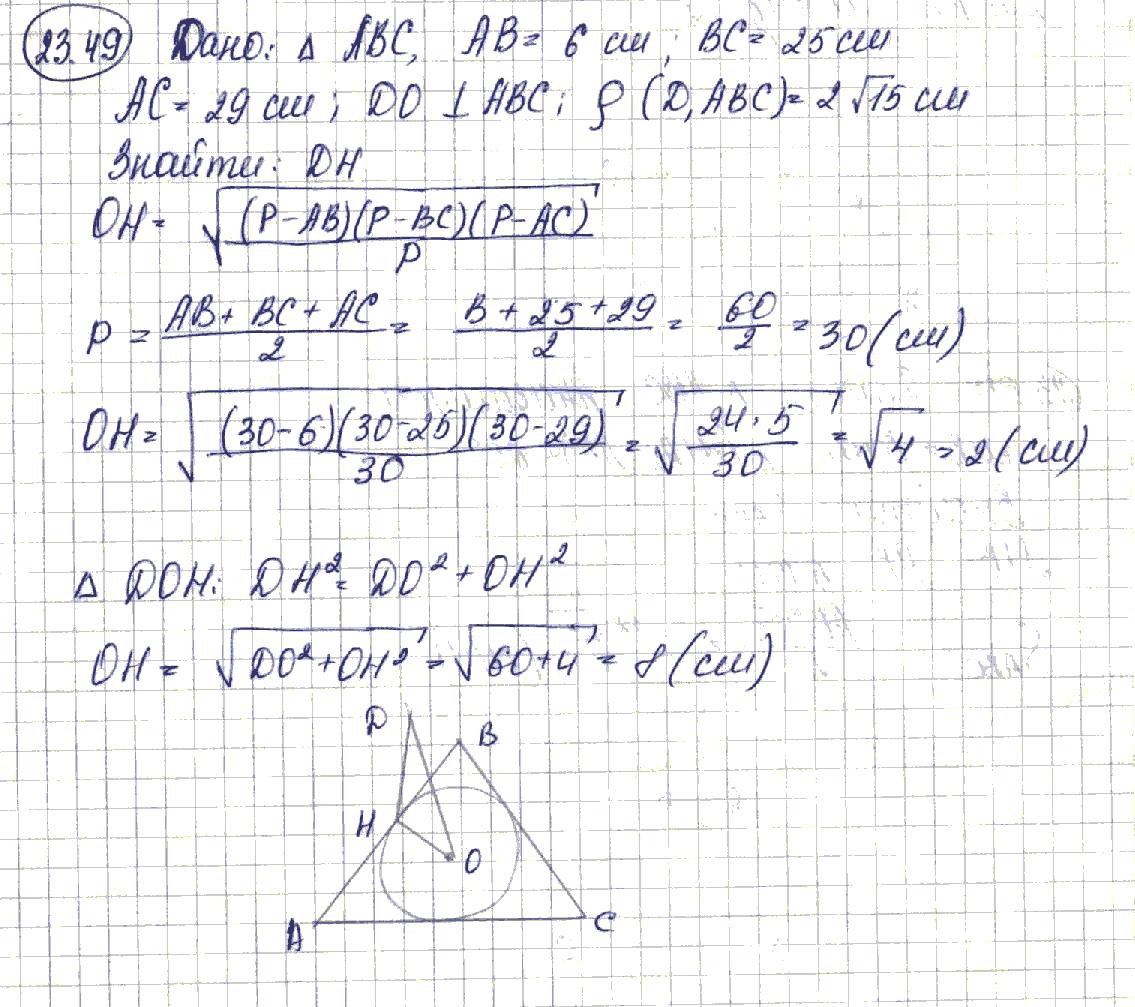 23.49 Дано: △ ABC, AB = 6 см; BC = 25 см
AC = 29 см; DO ⊥ ABC; ρ (D, ABC) = 2√15 см
Знайти: DH
OH = √((P-AB)(P-BC)(P-AC)/P)
P = (AB + BC + AC)/2 = (B + 25 + 29)/2 = 60/2 = 30 (см)
OH = √((30-6)(30-25)(30-29)/30) = √(24·5/30) = √4 = 2 (см)
△ DOH: DH² = DO² + OH²
OH = √(DO² + OH²) = √(60+4) = 8 (см)
D
B
H
O
A
C